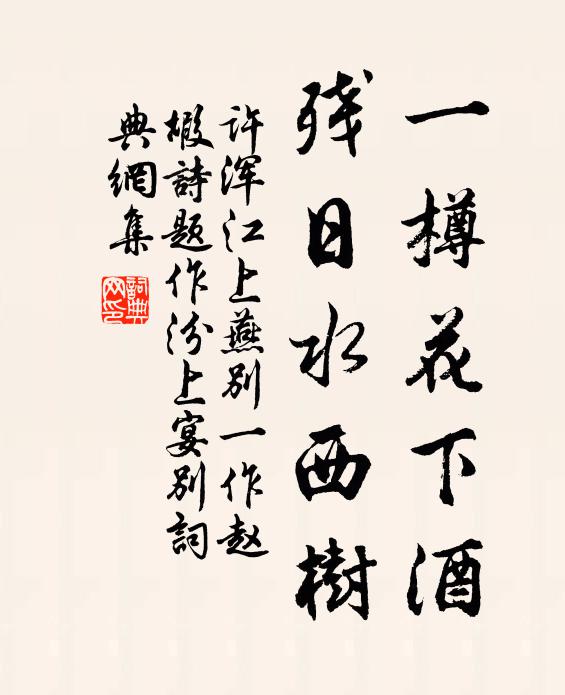 一樽花下酒
残日水西樹
许浑江上燕别一作赵
嘏詩题作汾上宴别詞
典網集
詞典网印